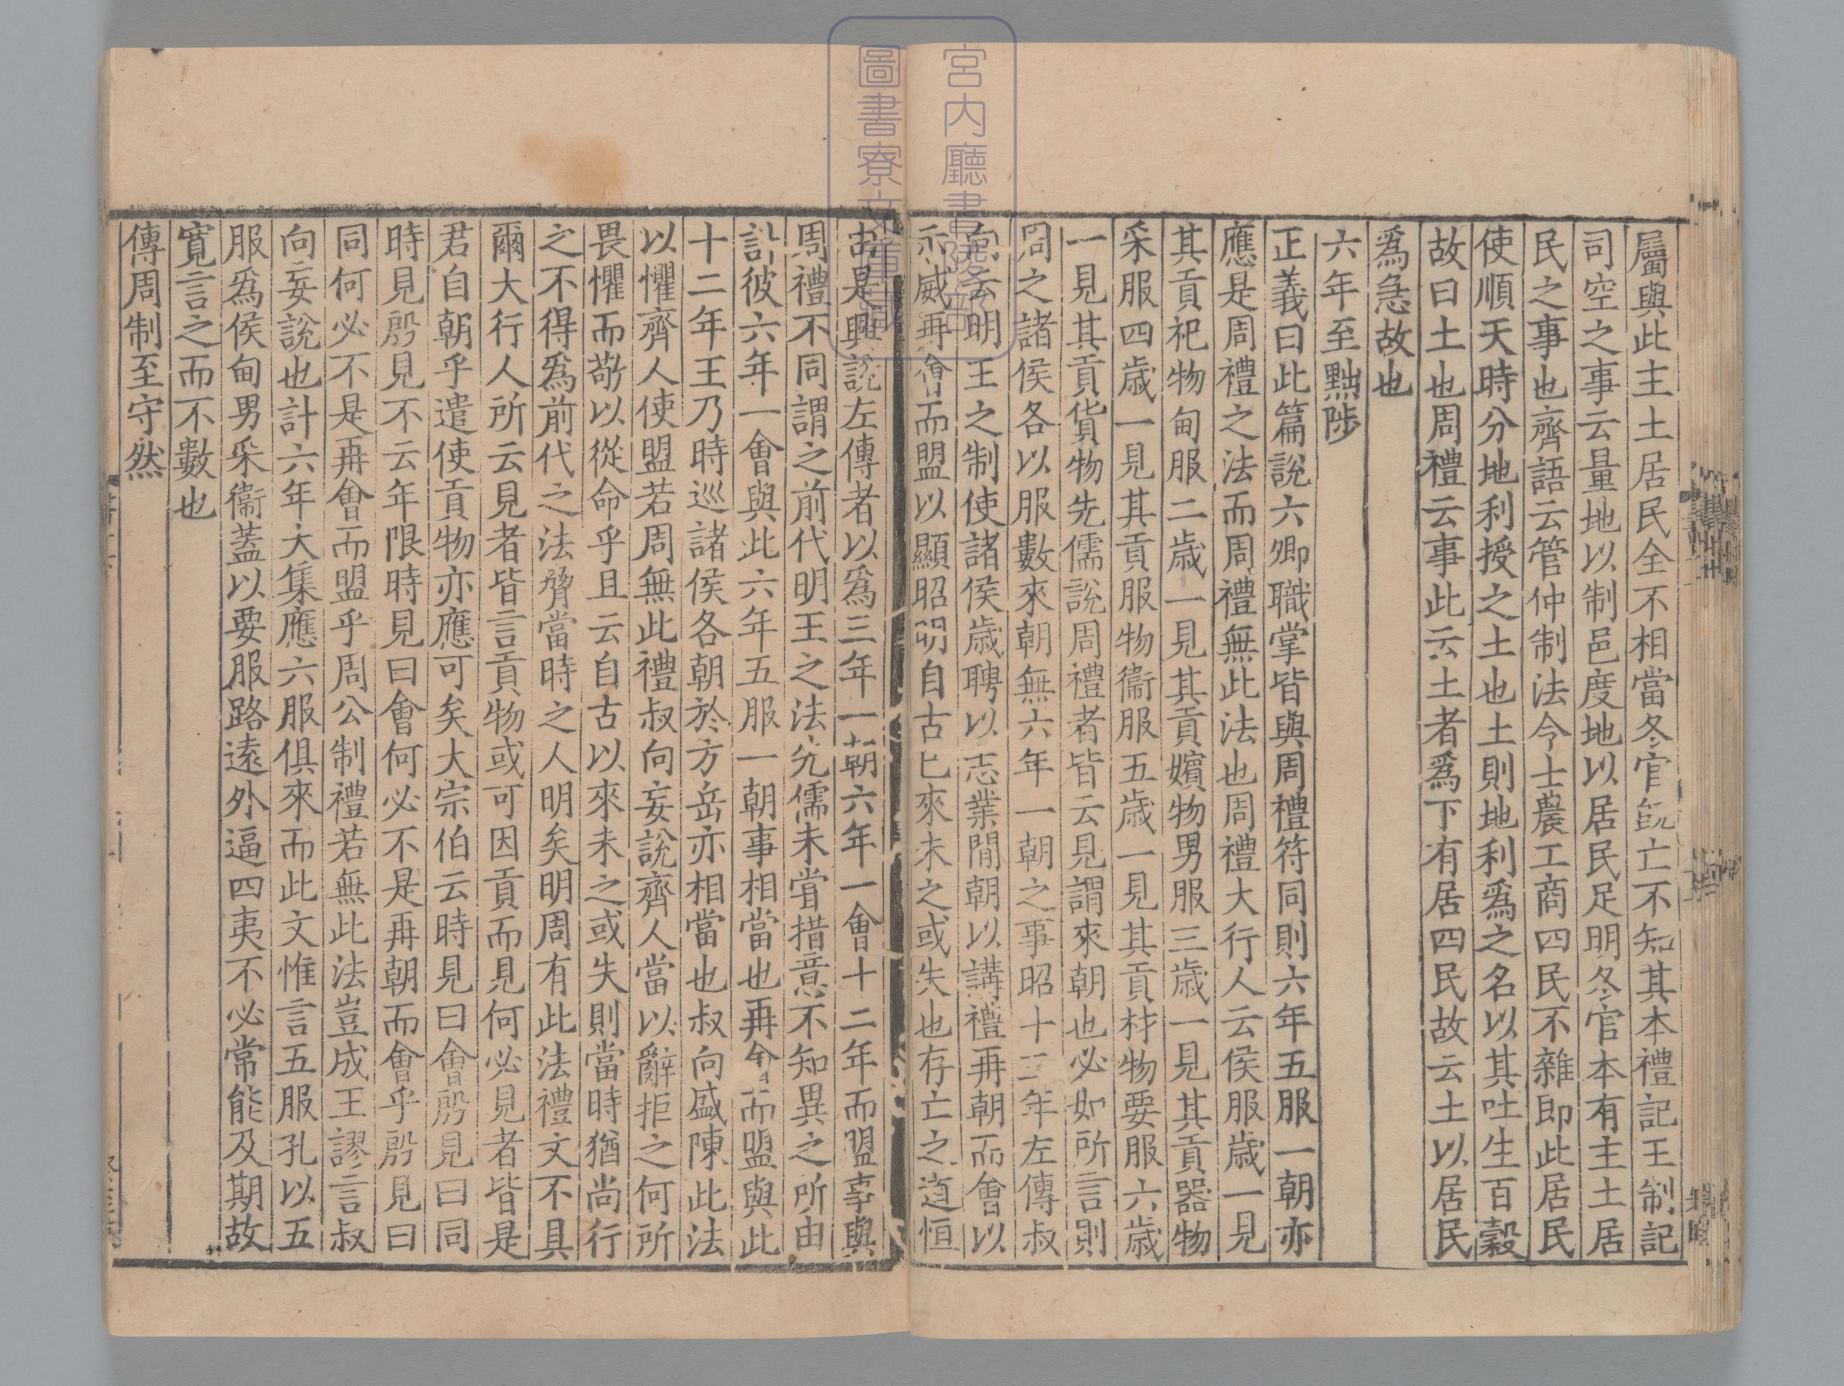 屬與此主土居民全不相當冬官既亡不知其本禮記王制記
司空之事云量地以制邑度地以居民足明冬官本有主土居
民之事也齊語云管仲制法令士農工商四民不雜即此居民
使順天時分地利授之土也土則地利爲之名以其吐生百穀
故曰土也周禮云事此云土者爲下有居四民故云土以居民
爲急故也
六年至黜陟
正義曰此篇說六卿職掌皆與周禮符同則六年五服一朝亦
應是周禮之法而周禮無此法也周禮大行人云侯服歲一見
其貢祀物甸服二歲一見其貢嬪物男服三歲一見其貢器物
采服四歲一見其貢服物衞服五歲一見其貢材物要服六歲
一見其貢貨物先儒說周禮者皆云見謂來朝也必如所言則
周之諸侯各以服數來朝無六年一朝之事昭十三年左傳叔
向云明王之制使諸侯歲聘以志業閒朝以講禮再朝而會以
示威再會而盟以顯昭明自古已來未之或失也存亡之道恒
由是興說左傳者以爲三年一朝六年一會十二年而盟事與
周禮不同謂之前代明王之法先儒未甞措意不知異之所由
計彼六年一會與此六年五服一朝事相當也再會而盟與此
十二年王乃時巡諸侯各朝於方岳亦相當也叔向盛陳此法
以懼齊人使盟若周無此禮叔向妄說齊人當以辭拒之何所
畏懼而敬以從命乎且云自古以來未之或失則當時猶尚行
之不得爲前代之法脅當時之人明矣明周有此法禮文不具
爾大行人所云見者皆言貢物或可因貢而見何必見者皆是
君自朝乎遣使貢物亦應可矣大宗伯云時見曰會殷見曰同
時見殷見不云年限時見曰會何必不是再朝而會乎殷見曰
同何必不是再會而盟乎周公制禮若無此法豈成王謬言叔
向妄說也計六年大集應六服俱來而此文惟言五服孔以五
服爲侯甸男采衞蓋以要服路遠外逼四夷不必常能及期故
寬言之而不數也
傳周制至守然
宮內廳書陵部
圖書寮文庫